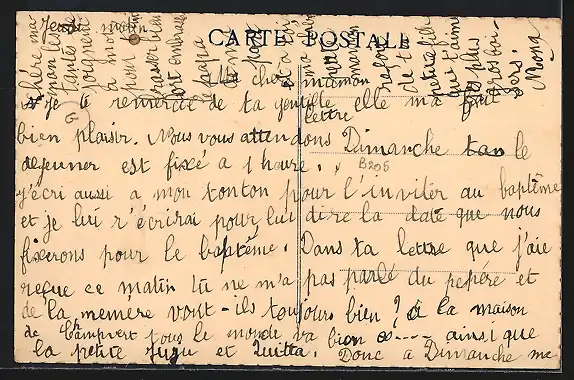 Jeudi matin
CARTE POSTALE
Ma chère maman
je te remercie de ta gentille lettre elle m'a fait
bien plaisir. Nous vous attendons Dimanche le
dejeuner est fixé a 1 heure.
B206
j'ecri aussi a mon tonton pour l'inviter au baptême
et je lui r'écrirai pour lui dire la date que nous
fixerons pour le baptême. Dans ta lettre que j'aie
reçue ce matin tu ne m'a pas parlé du pepére et
de la memére vont-ils toujours bien ? à la maison
de Campvert tous le monde va bien ainsi que
la petite et Quitta. Donc à Dimanche ma
chère ma
man les
tantes
a mon
pour
le papa
et a toi
ma chère
maman
petite fille
qui t'aime
gros bai-
sers.
Mona